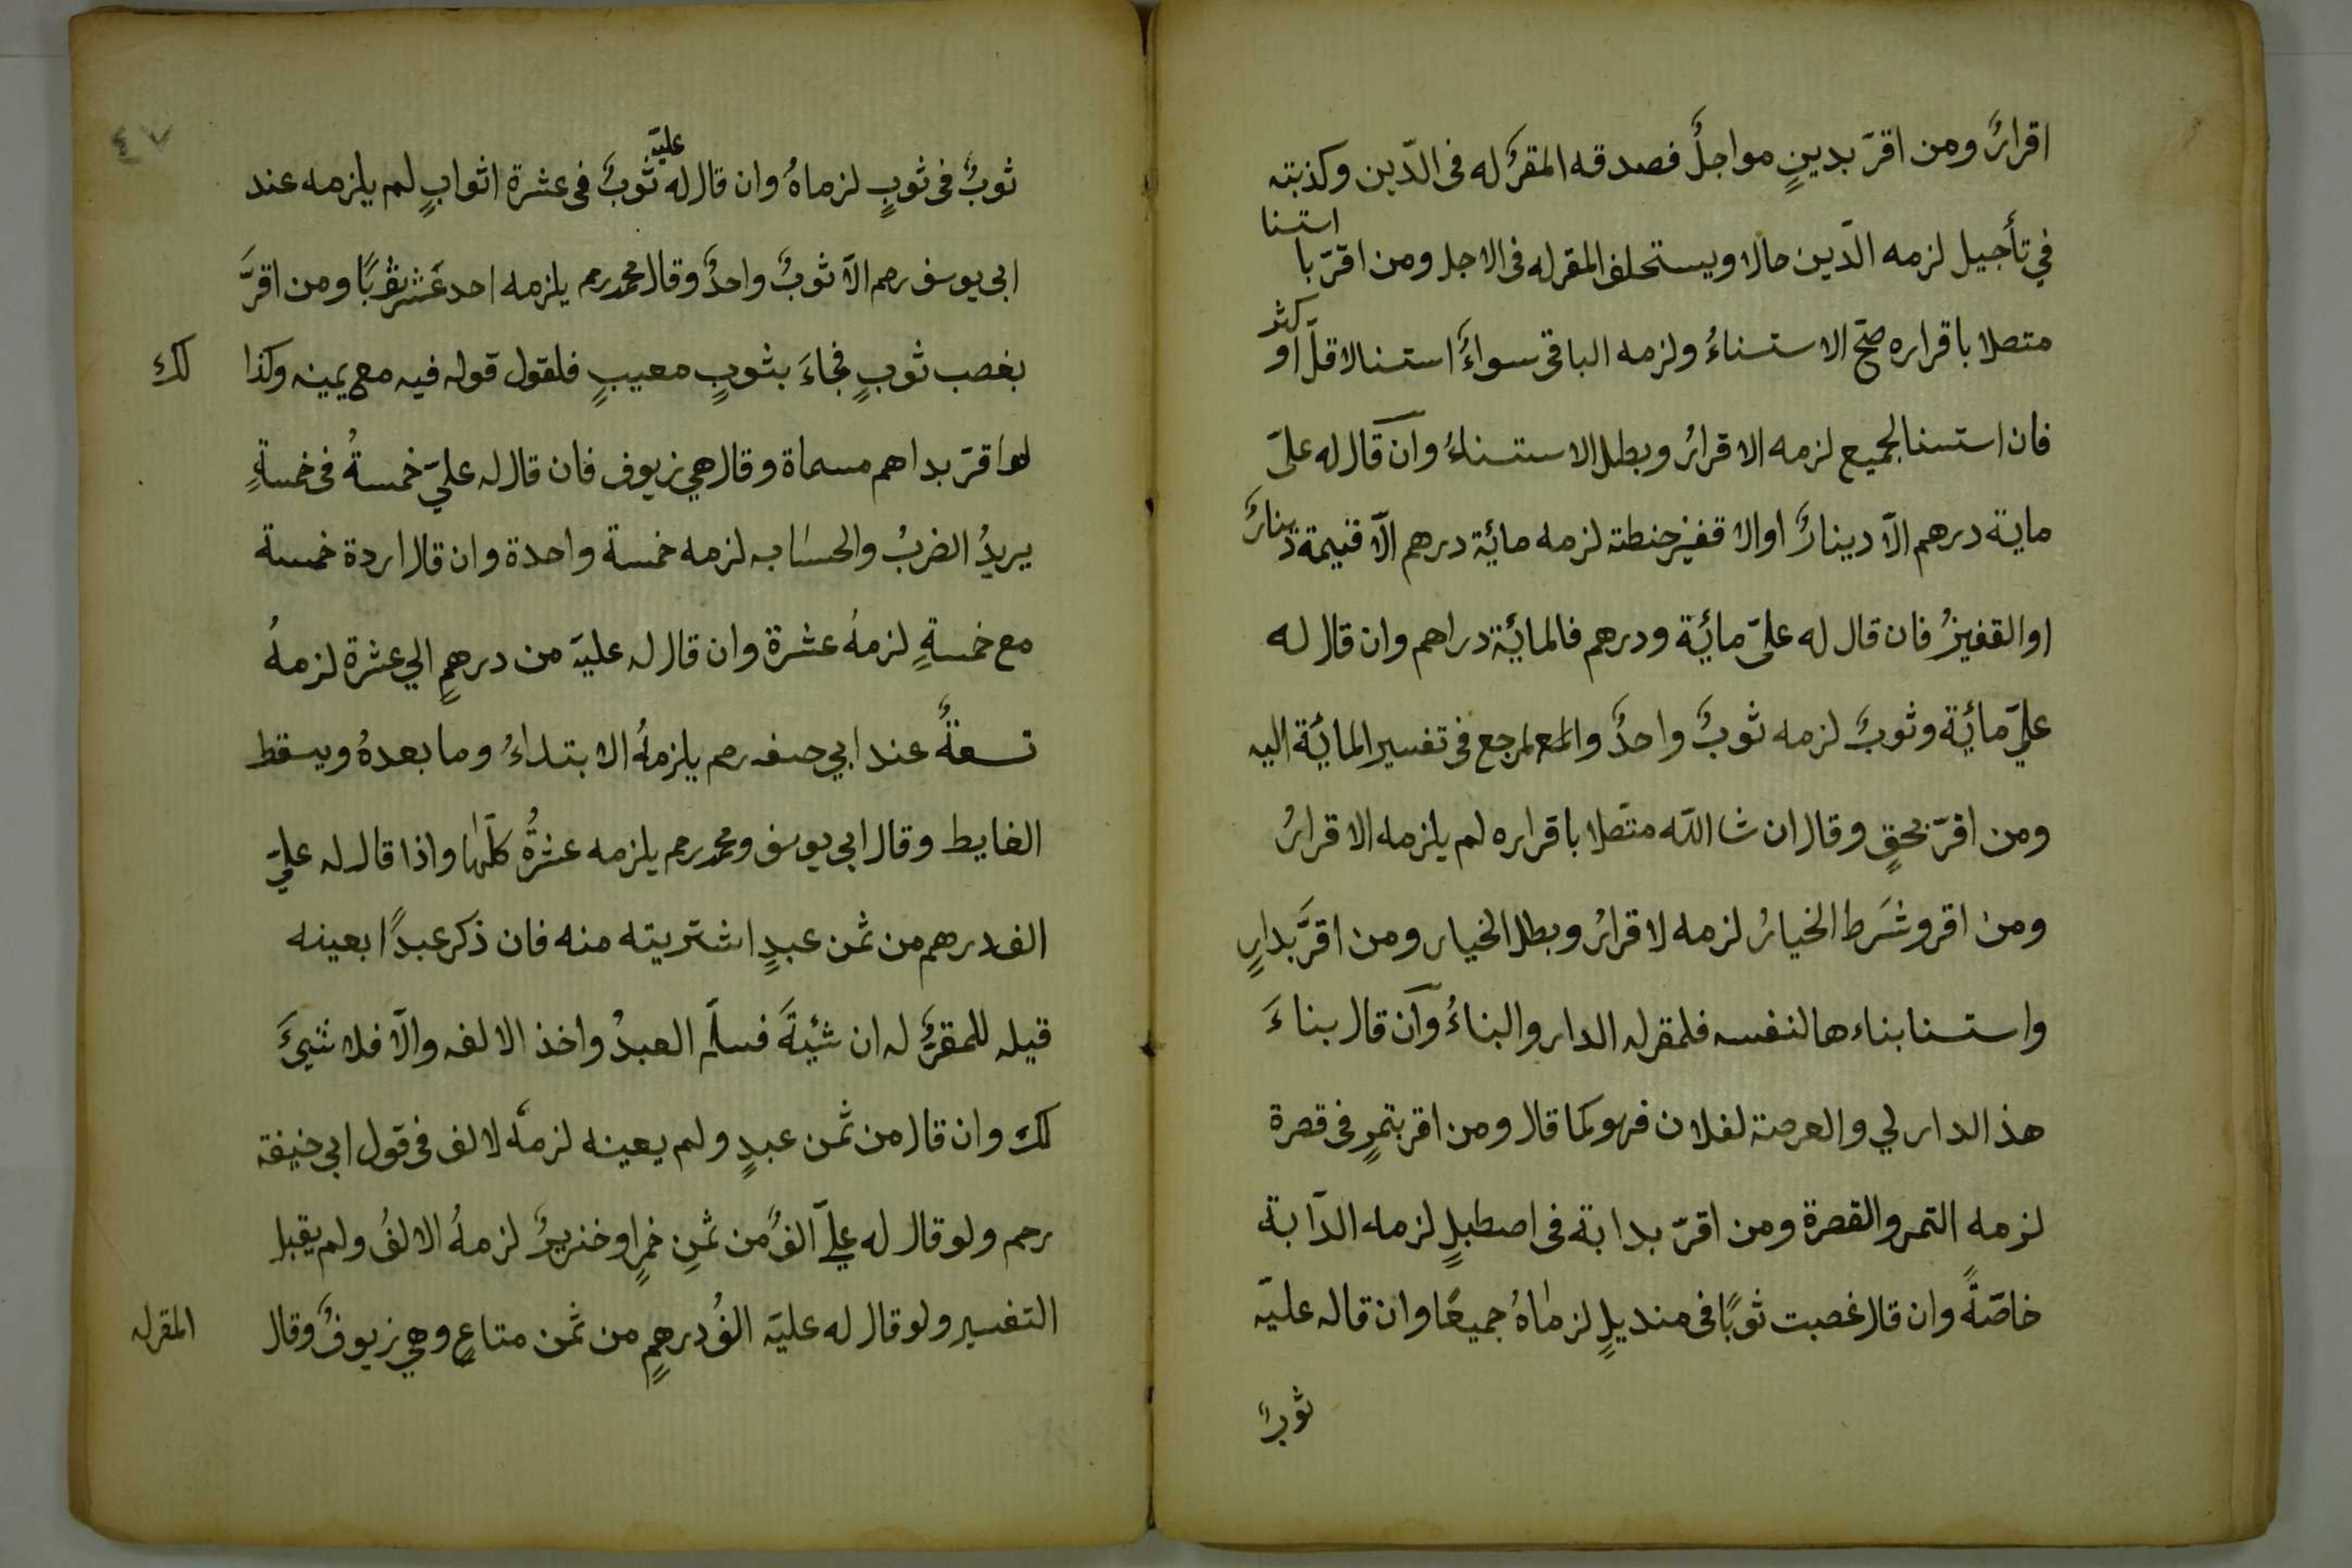 اقرارً ومن اقرّ بدينٍ مواجلً فصدقه المقرّ له فى الدّين وكذبته
في تأجيل لزمه الدّين حالا ويستحلف المقرله فى الاجل ومن اقرّ با استنا
متصلا باقراره صحّ الاستناءُ ولزمه الباقى سواءً استنا لاقلّ او كثر
فان استنا لجميع لزمه الاقرارُ وبطل الاستناءُ وان قال له علىّ
ماية درهم الّا دينارً او الا قفيز حنطته لزمه مائة درهم الّا قيمة دينارً
او القفيزُ فان قال له علىّ مائة ودرهم فالمائة دراهم وان قال له
عليّ مائة وثوبً لزمه ثوبً واحدً والمع لمرجع فى تفسير المائة اليه
ومن اقرّ بحقٍ وقال ان شا اللّه متصلا باقراره لم يلزمه الاقرارُ
ومن اقر وشَرط الخيارُ لزمه لاقرارُ وبطل الخيار ومن اقرَّ بدارٍ
واستنا بناءها لنفسه فلمقرله الدار والبناءُ وان قال بناءَ
هذ الدار لي والعرصة لفلان فهو كما قال ومن اقر بتمرٍ فى قصرة
لزمه التمر والقصرة ومن اقرّ بدابة فى اصطبلٍ لزمه الدّابة
خاصّةً وان قال غصبت ثوبًا فى منديلٍ لزماهُ جميعًا وان قاله عليّه
ثوبً
٤٧
ثوبً فى ثوبٍ لزماهُ وان قال له عليّه ثوبً فى عشرة اثوابٍ لم يلزمه عند
ابى يوسف رحم الّا ثوبً واحدً وقال محمد رحم يلزمه احد عَشر ثوبًا ومن اقرَّ
بغصب ثوبٍ فجاءَ بثوبٍ معيبٍ فلقول قوله فيه مع يمينه وكذا لك
لو اقرّ بداهم مسماة وقال هي زيوف فان قال له عليّ خمسةُ فى خمسةٍ
يريدُ الضربُ والحسَاب لزمه خمسة واحدة وان قال اردة خمسة
مع خمسةٍ لزمهُ عشرة وان قال له عليّه من درهمٍ الي عشرة لزمهُ
تسعةً عند ابي حنفه رحم يلزمهُ الابتداءُ وما بعدهُ ويسقط
الغايط وقال ابي يوسف ومحمد رحم يلزمه عشرةُ كلّها واذا قال له عليّ
الف درهم من ثمن عبدٍ اشتريته منه فان ذكر عبدًا بعينه
قيله للمقرّ له ان شئتَ فسلّم العبدُ واخذ الالف والّا فلا شئَ
لك وان قال من ثمن عبدٍ ولم يعينه لزمهُ لالف فى قول ابى حنيفة
رحم ولو قال له عليّ الفً من ثمنِ خمرٍ او خنزيرً لزمهُ الالفُ ولم يقبل
التفسير ولو قال له عليّه الفُ درهمٍ من ثمن متاعٍ وهي زيوفً وقال
المقرله